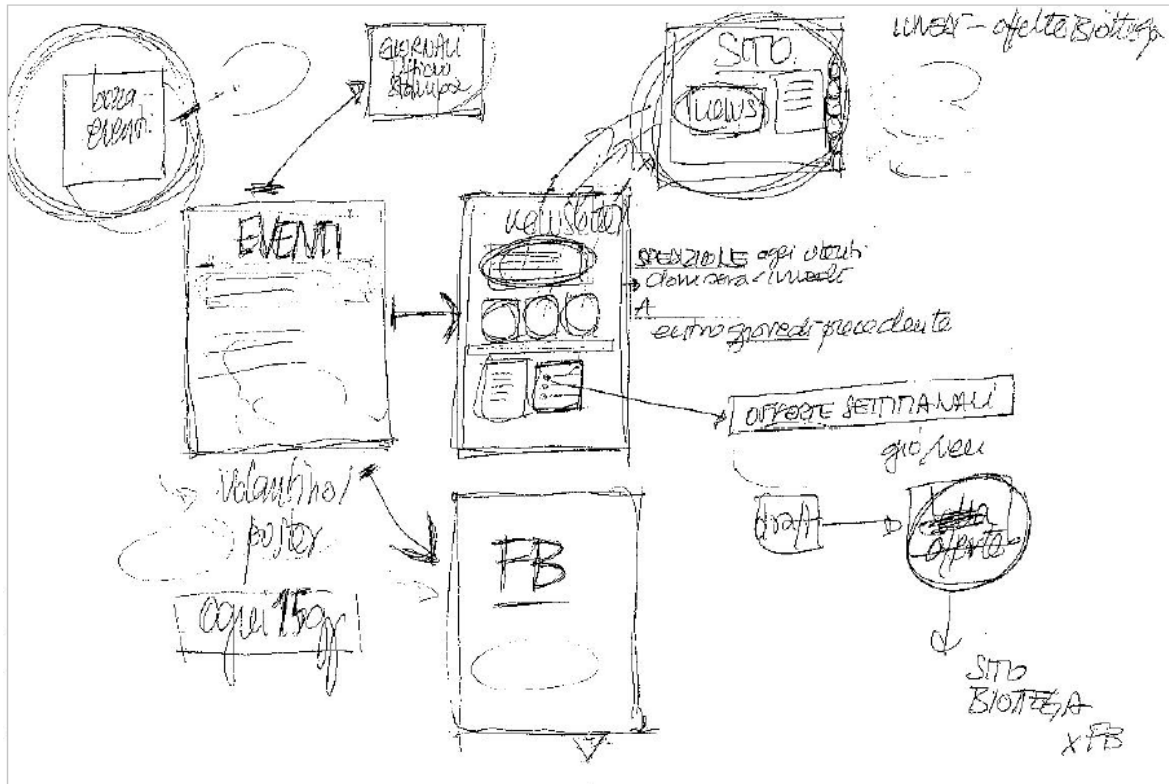 bozza
eventi
GIORNALI
ufficio
stampa
SITO
news
LUNEDI - offerte Biottega
EVENTI
newsletter
SPEDIZIONE ogni
dom sera / lunedi
A
entro giovedi precedente
OFFERTE SETTIMANALI
gio/ven
draft
offerte
SITO
BIOTTEGA
x FB
volantino/
poster
ogni 15gg
FB